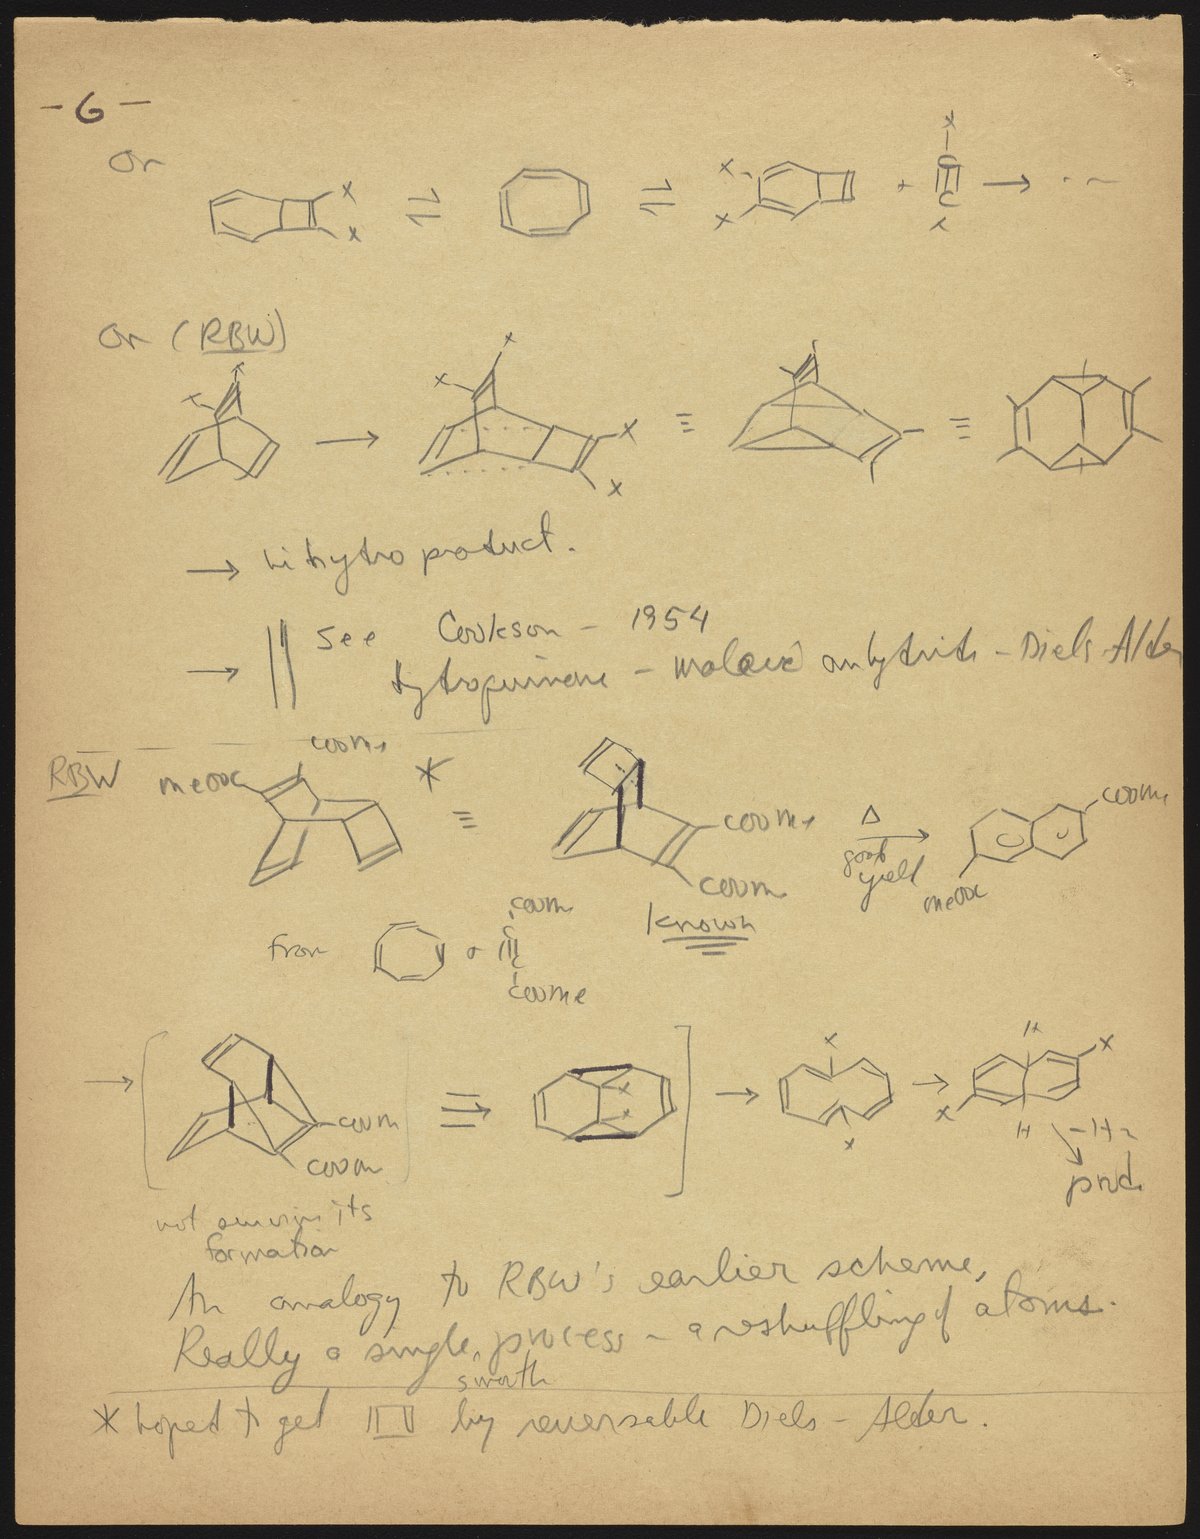 - 6 -
Or
X
X
⇌
⇌
X
X
+
X
C
C
X
→
Or (RBW)
X
X
→
X
X
X
X
≡
≡
→ dihydro product.
→ See Cookson - 1954
hydroquinone - maleic anhydride - Diels-Alder
RBW
COOMe
MeOOC
*
≡
COOMe
COOMe
known
Δ
good
yield
COOMe
MeOOC
from
+
COOMe
C
C
COOMe
→ [
COOMe
COOMe
x
x
] →
X
X
→
H
X
X
H
-H2
prod.
not surviving its
formation
An analogy to RBW's earlier scheme,
Really a single, smooth process - a reshuffling of atoms.
* hoped to get by reversable Diels - Alder.